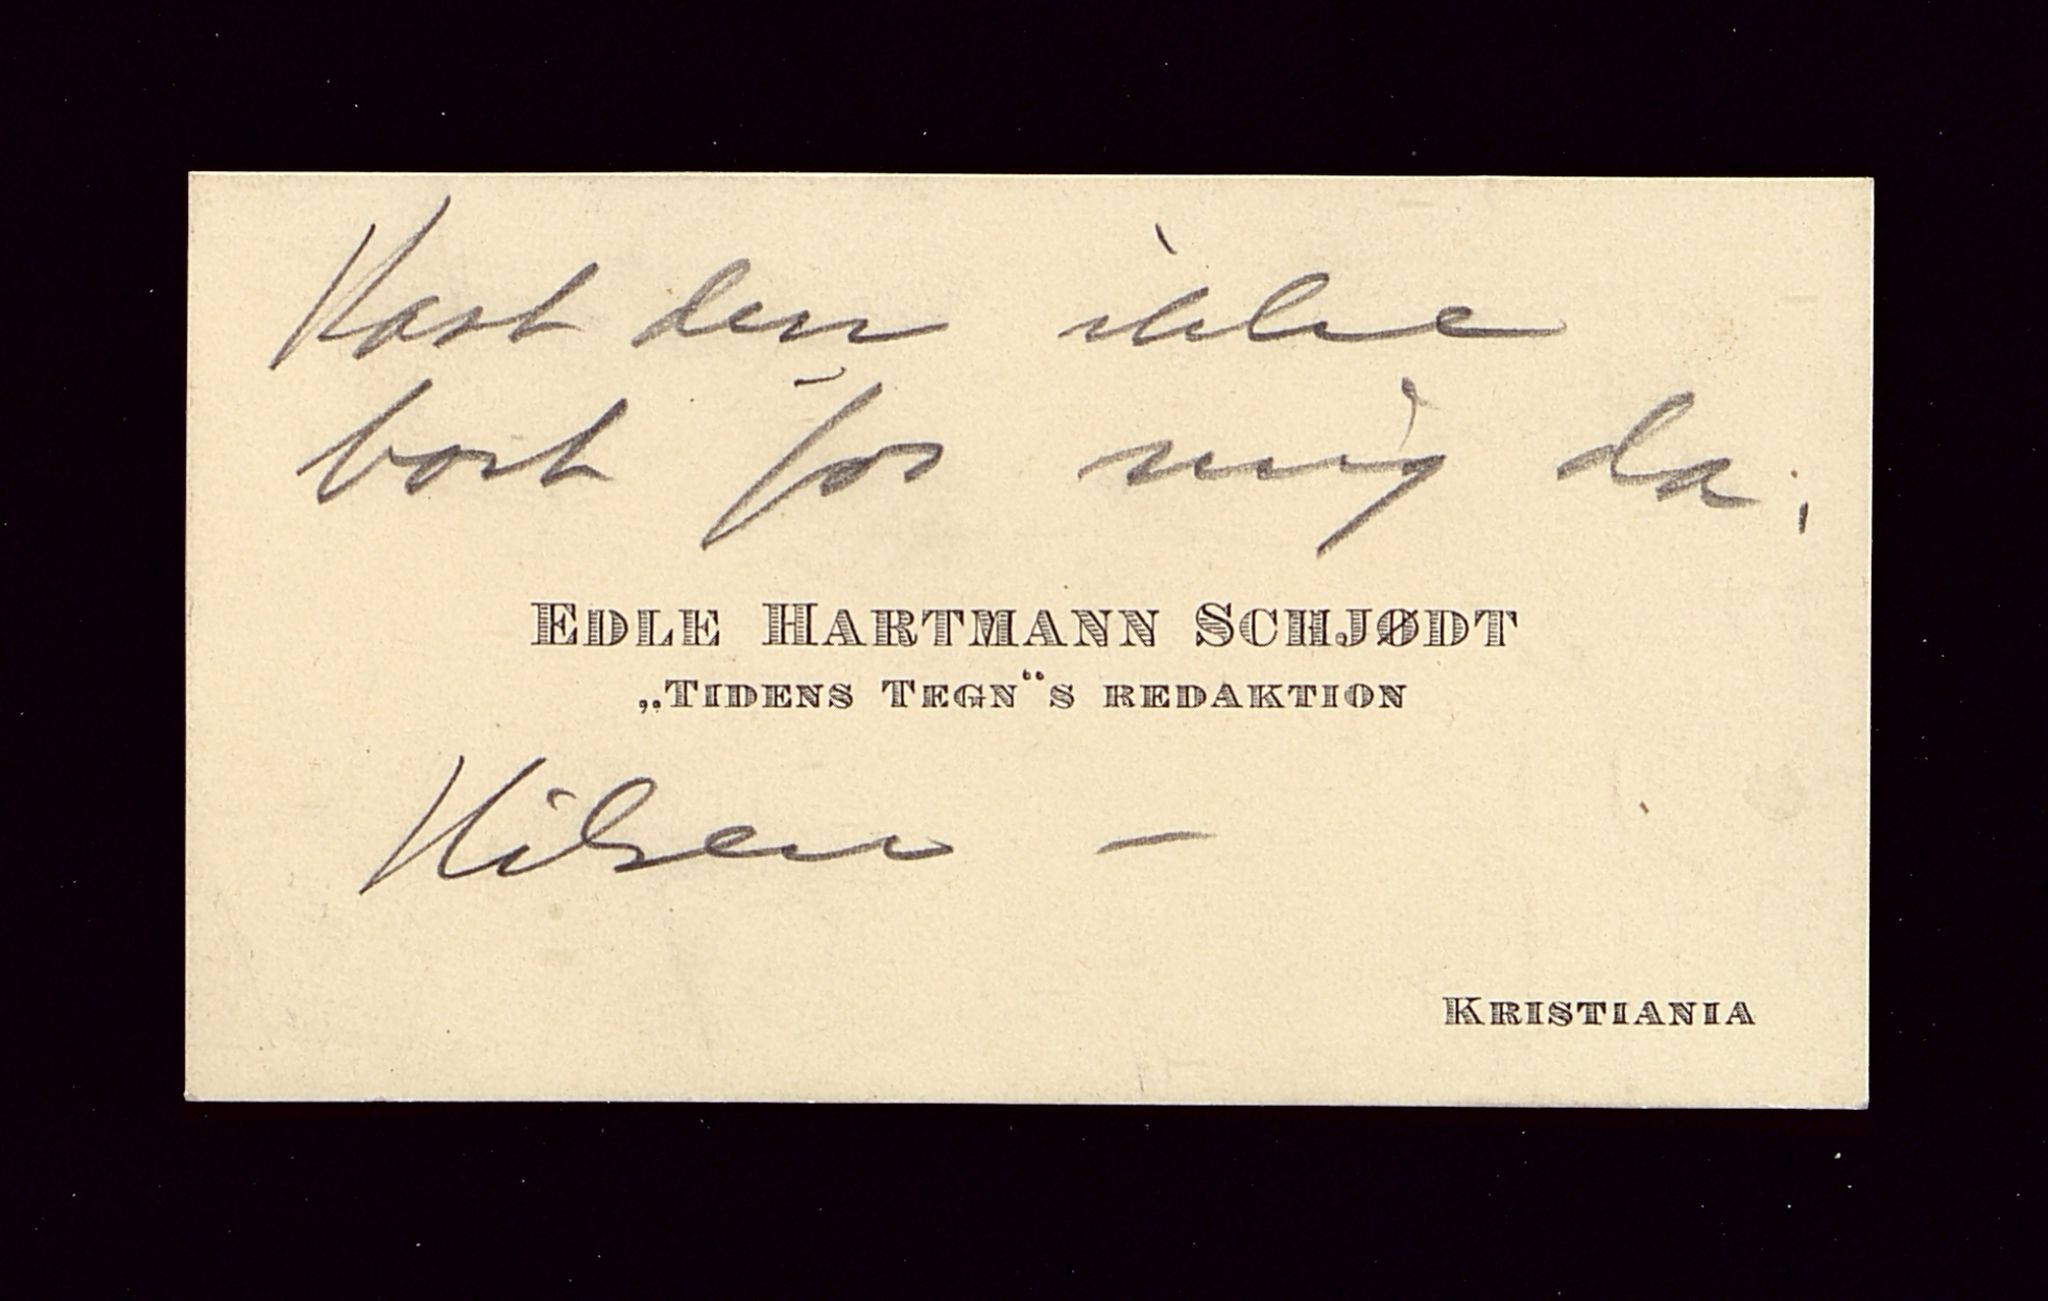 Kast den ikke
bort for mig da;
EDLE HARTMANN SCHJØDT
„TIDENS TEGN“S REDAKTION
Hilsen —
KRISTIANIA